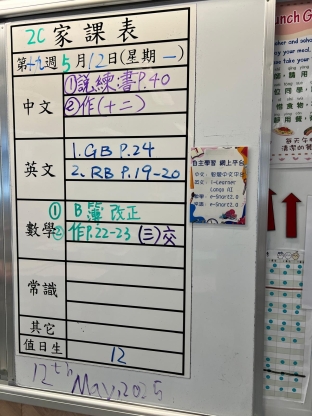 2C 家課表
第十九週5月12日(星期一)
中文
①説練.書P.40
②作(十二)
英文
1. GB P.24
2. RB P.19-20
數學
① B簿 改正
② 作P.22-23 (三)交
常識
其它
值日生
12
12th May, 2025
自主學習 網上平台
i-Learner
unch